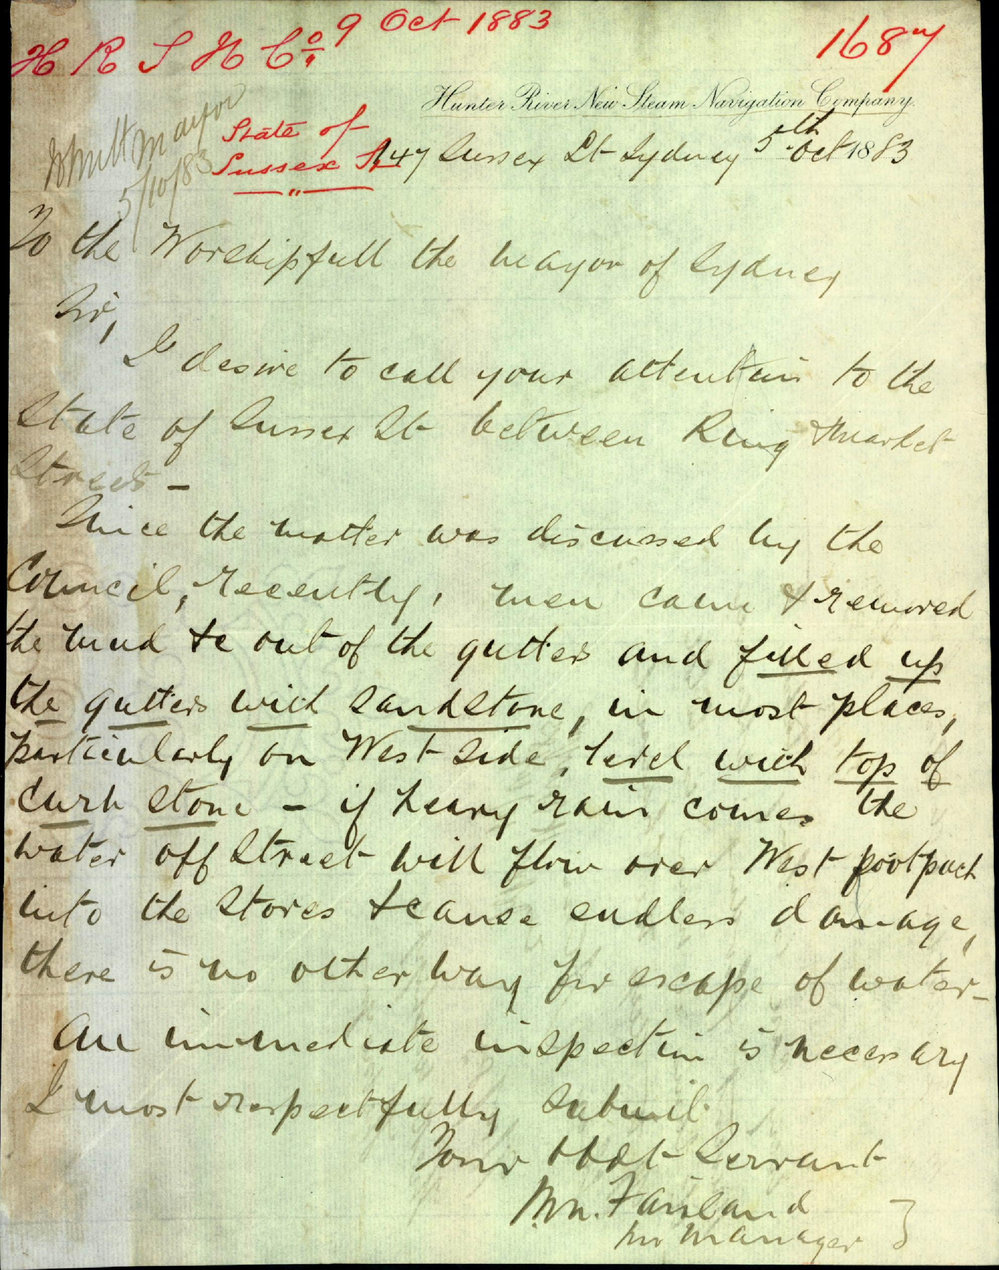 H R S N Co 9 Oct 1883
1687
Hunter River New Steam Navigation Company.
State of
Sussex St
Mayor
5/10/83
147 Sussex St Sydney 5th Oct 1883
To the Worshipfull the Mayor of Sydney
Sir,
I desire to call your attention to the
State of Sussex St between King & Market
Streets -
Since the matter was discussed by the
Council, recently, men came & removed
the mud &c out of the gutters and filled up
the gutters with sandstone, in most places,
particularly on West side, level with top of
Curb stone - if heavy rain comes the
water off Street will flow over West footpath
into the stores & cause endless damage,
there is no other way for escape of water -
An immediate inspection is necessary
I most respectfully submit
Your Obdt Servant
Manager